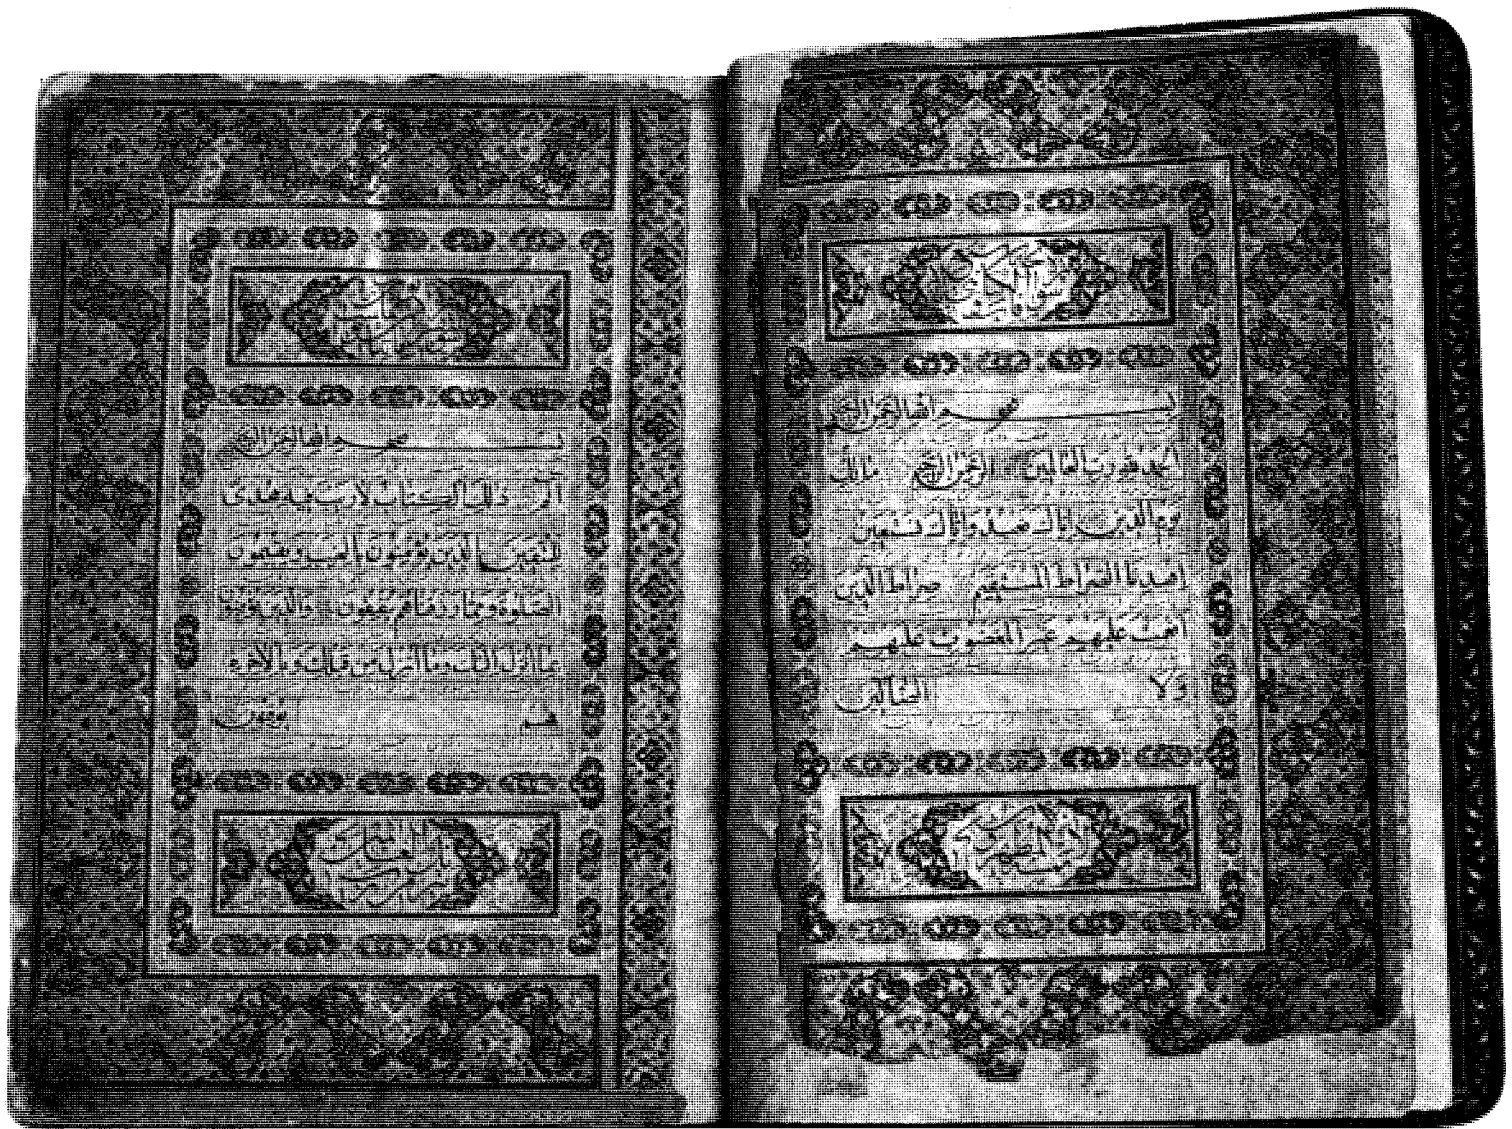 بسم الله الرحمن الرحيم
الحمد لله رب العالمين الرحمن الرحيم مالك
يوم الدين إياك نعبد وإياك نستعين
اهدنا الصراط المستقيم صراط الذين
أنعمت عليهم غير المغضوب عليهم
ولا الضالين
بسم الله الرحمن الرحيم
الم ذلك الكتاب لا ريب فيه هدى
للمتقين الذين يؤمنون بالغيب ويقيمون
الصلوة ومما رزقناهم ينفقون والذين يؤمنون
بما أنزل إليك وما أنزل من قبلك وبالآخرة
هم يوقنون